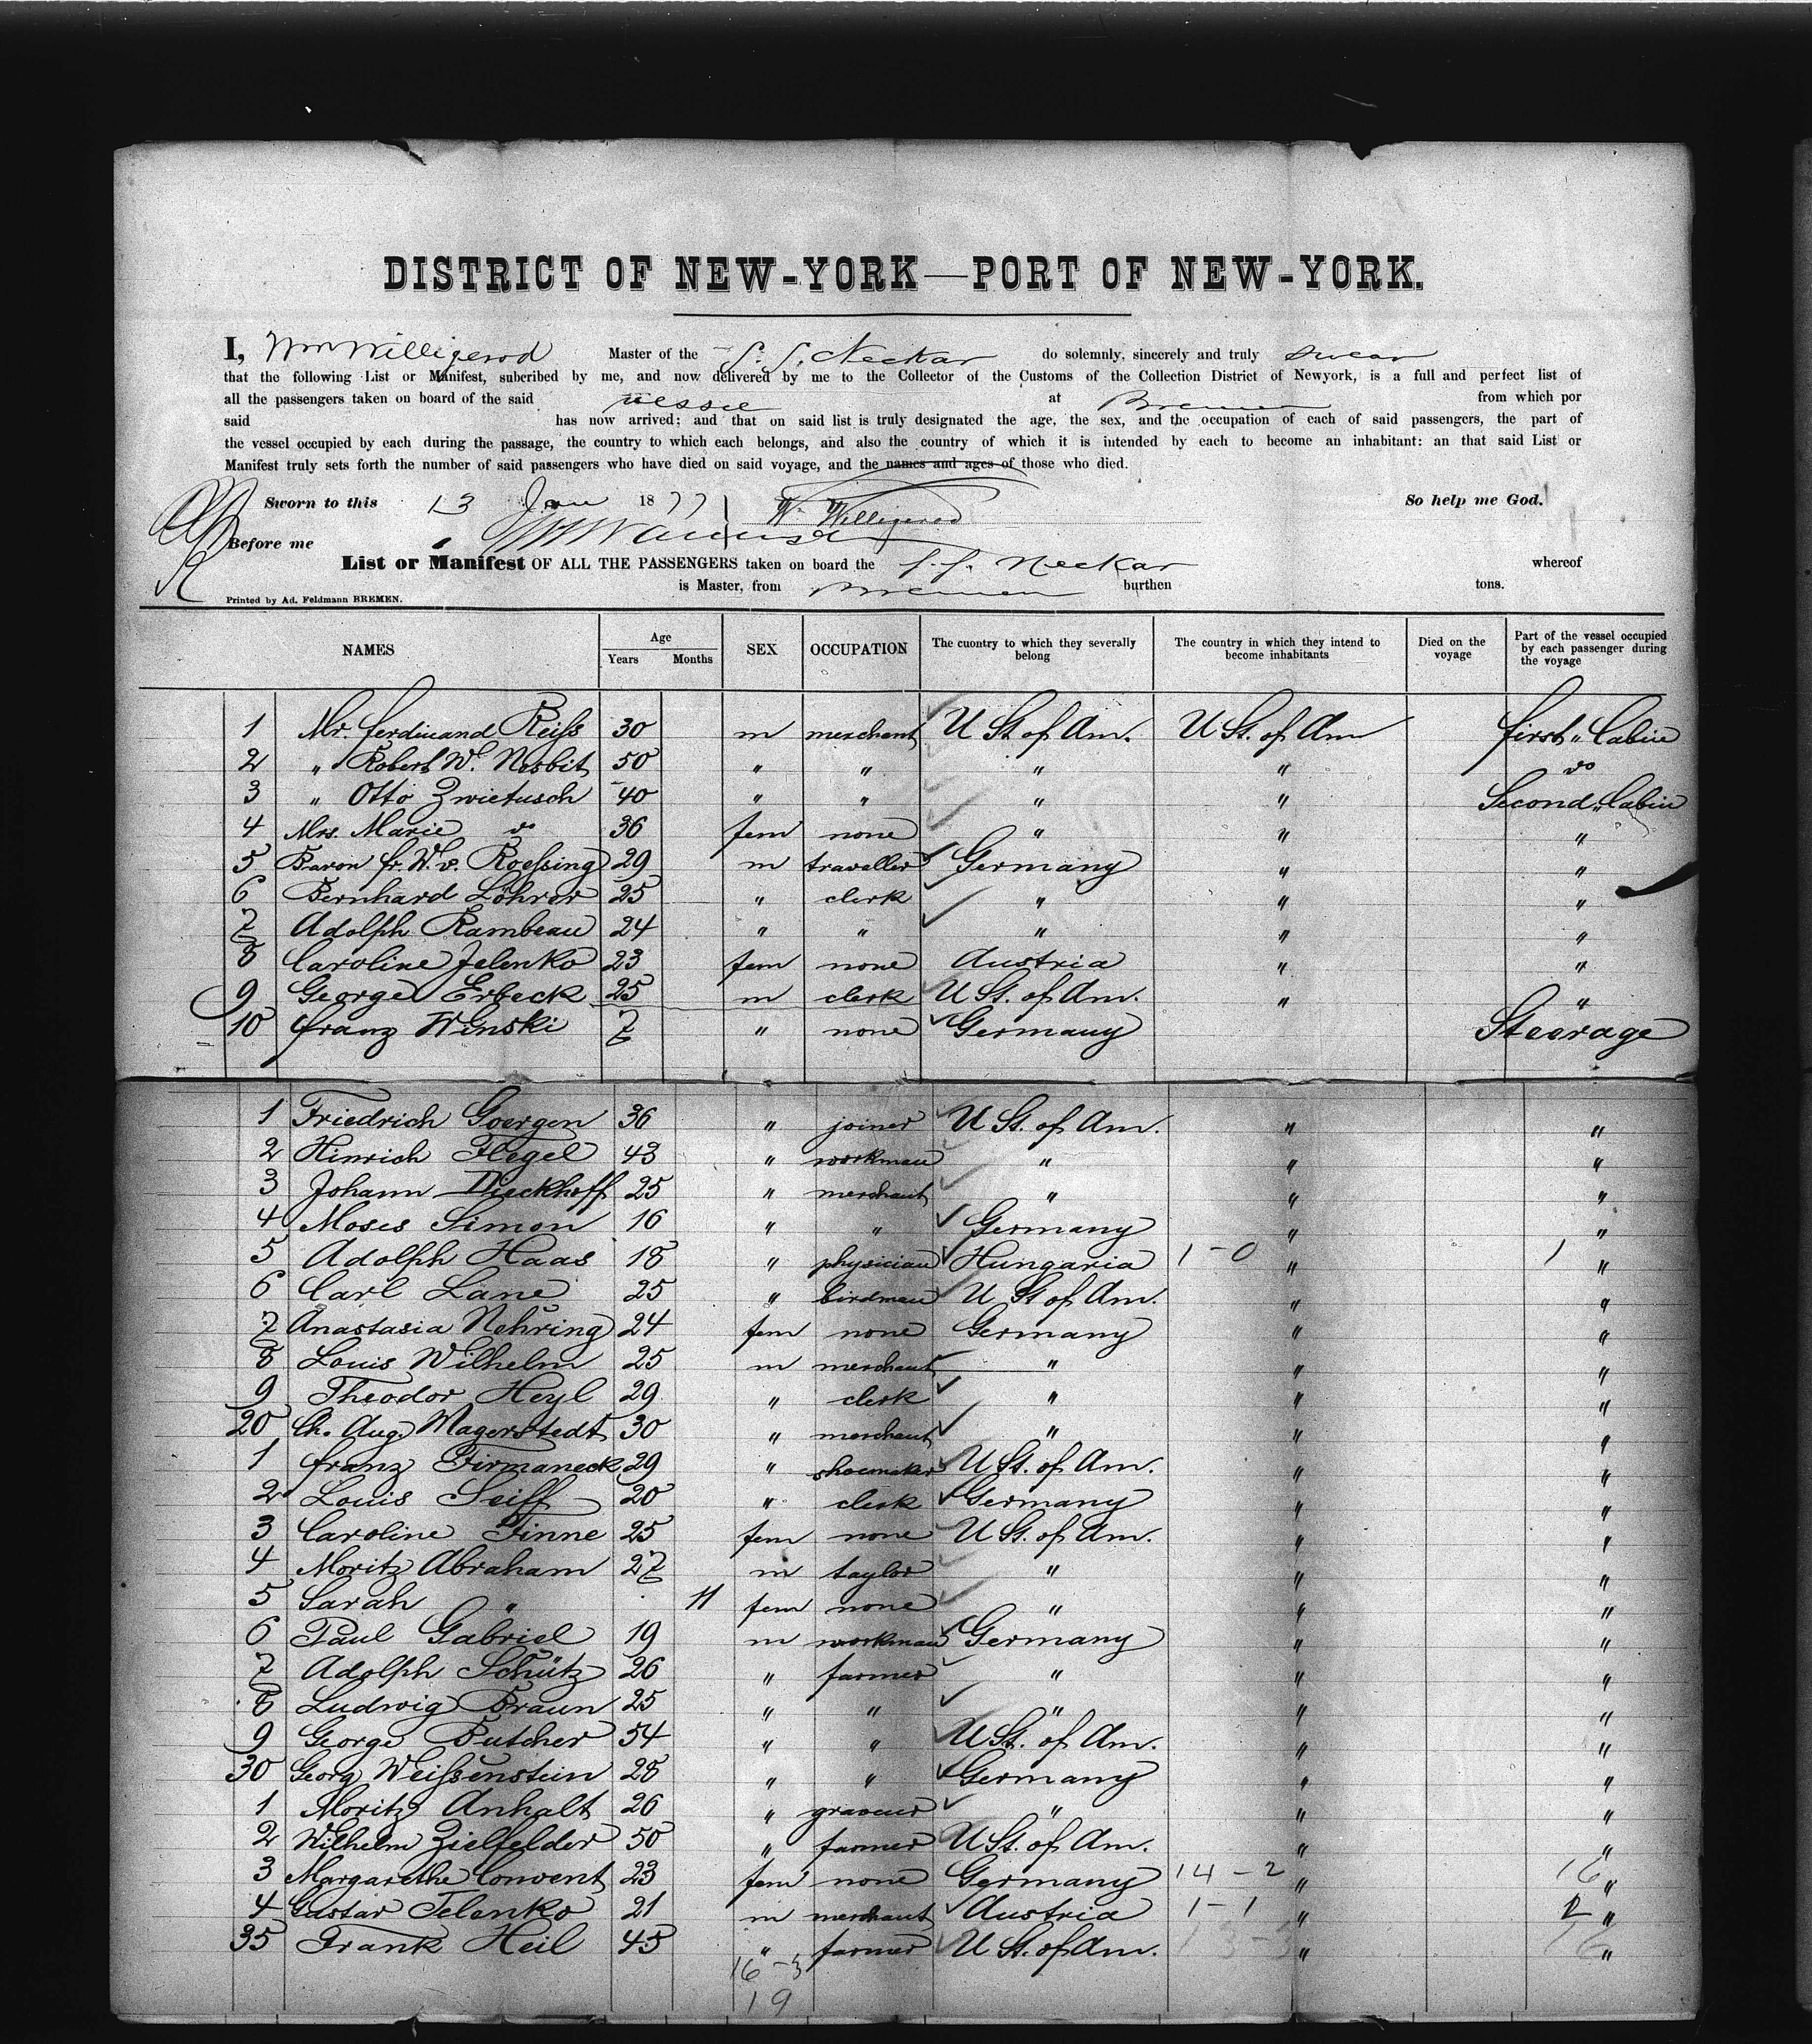 DISTRICT OF NEW-YORK—PORT OF NEW-YORK.
I, Wm Willigerod Master of the S. S. Neckar do solemnly, sincerely and truly swear
that the following List or Manifest, subcribed by me, and now delivered by me to the Collector of the Customs of the Collection District of Newyork, is a full and perfect list of
all the passengers taken on board of the said vessel at Bremen from which por
said has now arrived; and that on said list is truly designated the age, the sex, and the occupation of each of said passengers, the part of
the vessel occupied by each during the passage, the country to which each belongs, and also the country of which it is intended by each to become an inhabitant: an that said List or
Manifest truly sets forth the number of said passengers who have died on said voyage, and the names and ages of those who died.
Sworn to this 13 Jan 1877 W. Willigerod So help me God.
Before me
List or Manifest OF ALL THE PASSENGERS taken on board the S. S. Neckar whereof
is Master, from Bremen burthen tons.
Printed by Ad. Feldmann BREMEN.
NAMES Age Years Months SEX OCCUPATION The cuontry to which they severally belong The country in which they intend to become inhabitants Died on the voyage Part of the vessel occupied by each passenger during the voyage
1 Mr. Ferdinand Reiß 30 m merchant U St. of Am. U St. of Am First Cabin
2 " Robert W. Nesbit 50 " " " " do
3 " Otto Zwietusch 40 " " " " Second Cabin
4 Mrs. Marie do 36 fem none " " "
5 Baron Fr. W. v. Roeßing 29 m traveller Germany " "
6 Bernhard Löhrer 25 " clerk " " "
7 Adolph Rambeau 24 " " " " "
8 Caroline Jelenko 23 fem none Austria " "
9 George Erbeck 25 m clerk U St. of Am. " "
10 Franz Winski 7 " none Germany Steerage
1 Friedrich Goergen 36 " joiner U St. of Am. " "
2 Hinrich Flegel 43 " workman " " "
3 Johann Dieckhoff 25 " merchant " " "
4 Moses Simon 16 " " Germany " "
5 Adolph Haas 18 " physician Hungaria 1-0 " 1 "
6 Carl Lane 25 " birdman U St of Am. " "
7 Anastasia Nehring 24 fem none Germany " "
8 Louis Wilhelm 25 m merchant " " "
9 Theodor Heyl 29 " clerk " " "
20 Ch. Aug. Magerstedt 30 " merchant " " "
1 Franz Firmaneck 29 " shoemaker U St. of Am. " "
2 Louis Seiff 20 " clerk Germany " "
3 Caroline Finne 25 fem none U St. of Am. " "
4 Moritz Abraham 27 m taylor " " "
5 Sarah " 11 fem none " " "
6 Paul Gabriel 19 m workman Germany " "
7 Adolph Schütz 26 " farmer " " "
8 Ludwig Braun 25 " " " " "
9 George Butcher 54 " " U St. of Am. " "
30 Georg Weißenstein 28 " " Germany " "
1 Moritz Anhalt 26 " graveur " " "
2 Wilhelm Zielfelder 50 " farmer U St. of Am. " "
3 Margarethe Convent 23 fem none Germany 14-2 " 16 "
4 Gustav Jelenko 21 m merchant Austria 1-1 " 2 "
35 Frank Heil 45 " farmer U St. of Am. 13-3 " 16 "
16-3
19